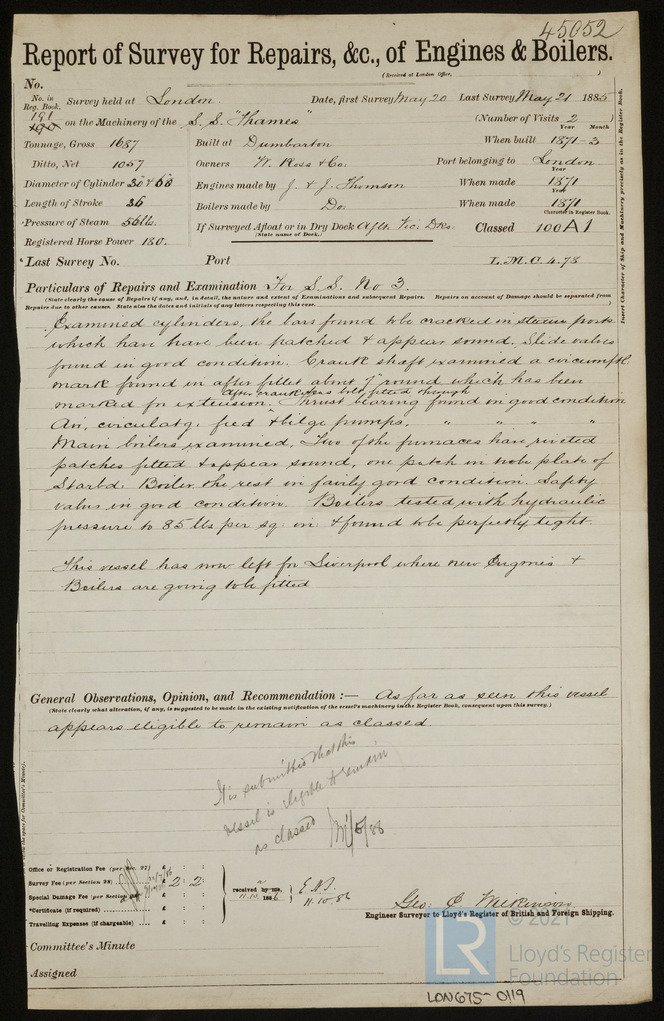 45052
Report of Survey for Repairs, &c., of Engines & Boilers.
(Received at London Office, )
No.
No. in Reg. Book. Survey held at London Date, first Survey May 20 Last Survey May 21 1885
191 190 on the Machinery of the S.S. "Thames" (Number of Visits 2)
Year Month
Tonnage, Gross 1687 Built at Dumbarton When built 1871-3
Ditto, Net 1057 Owners W. Ross & Co. Port belonging to London
Year
Diameter of Cylinder 30 & 60 Engines made by J. & J. Thomson When made 1871
Year
Length of Stroke 36 Boilers made by Do. When made 1871
Character in Register Book.
Pressure of Steam 56 lb. If Surveyed Afloat or in Dry Dock Aflt. Vic. Dks. Classed 100A1
(State name of Dock.)
Registered Horse Power 180.
Last Survey No. Port L.M.C. 4.78
Insert Character of Ship and Machinery precisely as in the Register Book.
Particulars of Repairs and Examination For S.S. No 3.
(State clearly the cause of Repairs if any, and, in detail, the nature and extent of Examinations and subsequent Repairs. Repairs on account of Damage should be separated from
Repairs due to other causes. State also the dates and initials of any letters respecting this case.)
Examined cylinders, the bars found to be cracked in steam ports
which have have been patched & appear sound. Slide valves
found in good condition. Crank shaft examined a circumftl
mark found in after fillet about 7" round which has been
After crank has bolt fitted through
marked for extension. Thrust bearing found in good condition
Air, circulatg. feed & bilge pumps, " " " "
Main boilers examined, Two of the furnaces have riveted
patches fitted & appear sound, one patch in tube plate of
Starbd. Boiler the rest in fairly good condition. Safety
valves in good condition. Boilers tested with hydraulic
pressure to 85 lbs per sq. in. & found to be perfectly tight.
This vessel has now left for Liverpool where new Engines &
Boilers are going to be fitted
General Observations, Opinion, and Recommendation :— As far as seen this vessel
(State clearly what alteration, if any, is suggested to be made in the existing notification of the vessel's machinery in the Register Book, consequent upon this survey.)
appears eligible to remain as classed
It is submitted that this
vessel is eligible to remain
as classed
Office or Registration Fee (per Sec. 27) £ : :
Survey Fee (per Section 28) £ 2 : 2 :
Special Damage Fee (per Section 28) £ : :
*Certificate (if required) £ : :
Travelling Expenses (if chargeable) £ : :
received by me,
11.10. 1886
11.10.86
Geo. C. Wilkinson
Engineer Surveyor to Lloyd's Register of British and Foreign Shipping.
Committee's Minute
Assigned
© 2021
LR
Lloyd's Register
Foundation
LON675-0119